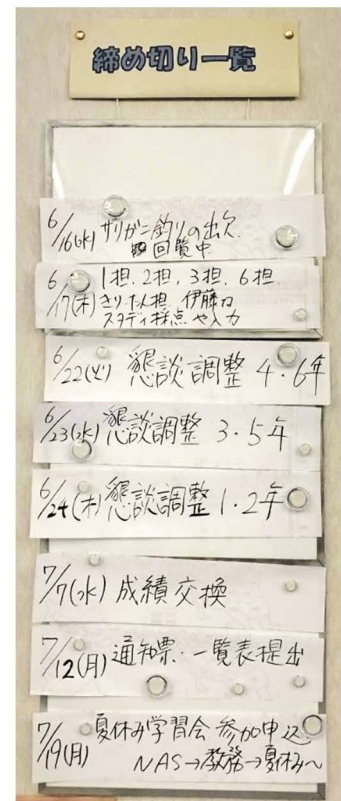 締め切り一覧
6/16(水) ザリガニ釣りの出欠
回覧中
6/17(木) 1担、2担、3担、6担
きりたん担、伊藤
スタディ採点や入力
6/22(火) 懇談調整 4・6年
6/23(水) 懇談調整 3・5年
6/24(木) 懇談調整 1・2年
7/7(水) 成績交換
7/12(月) 通知票・一覧表提出
7/19(月) 夏休み学習会参加申込
NAS→教務→夏休みへ